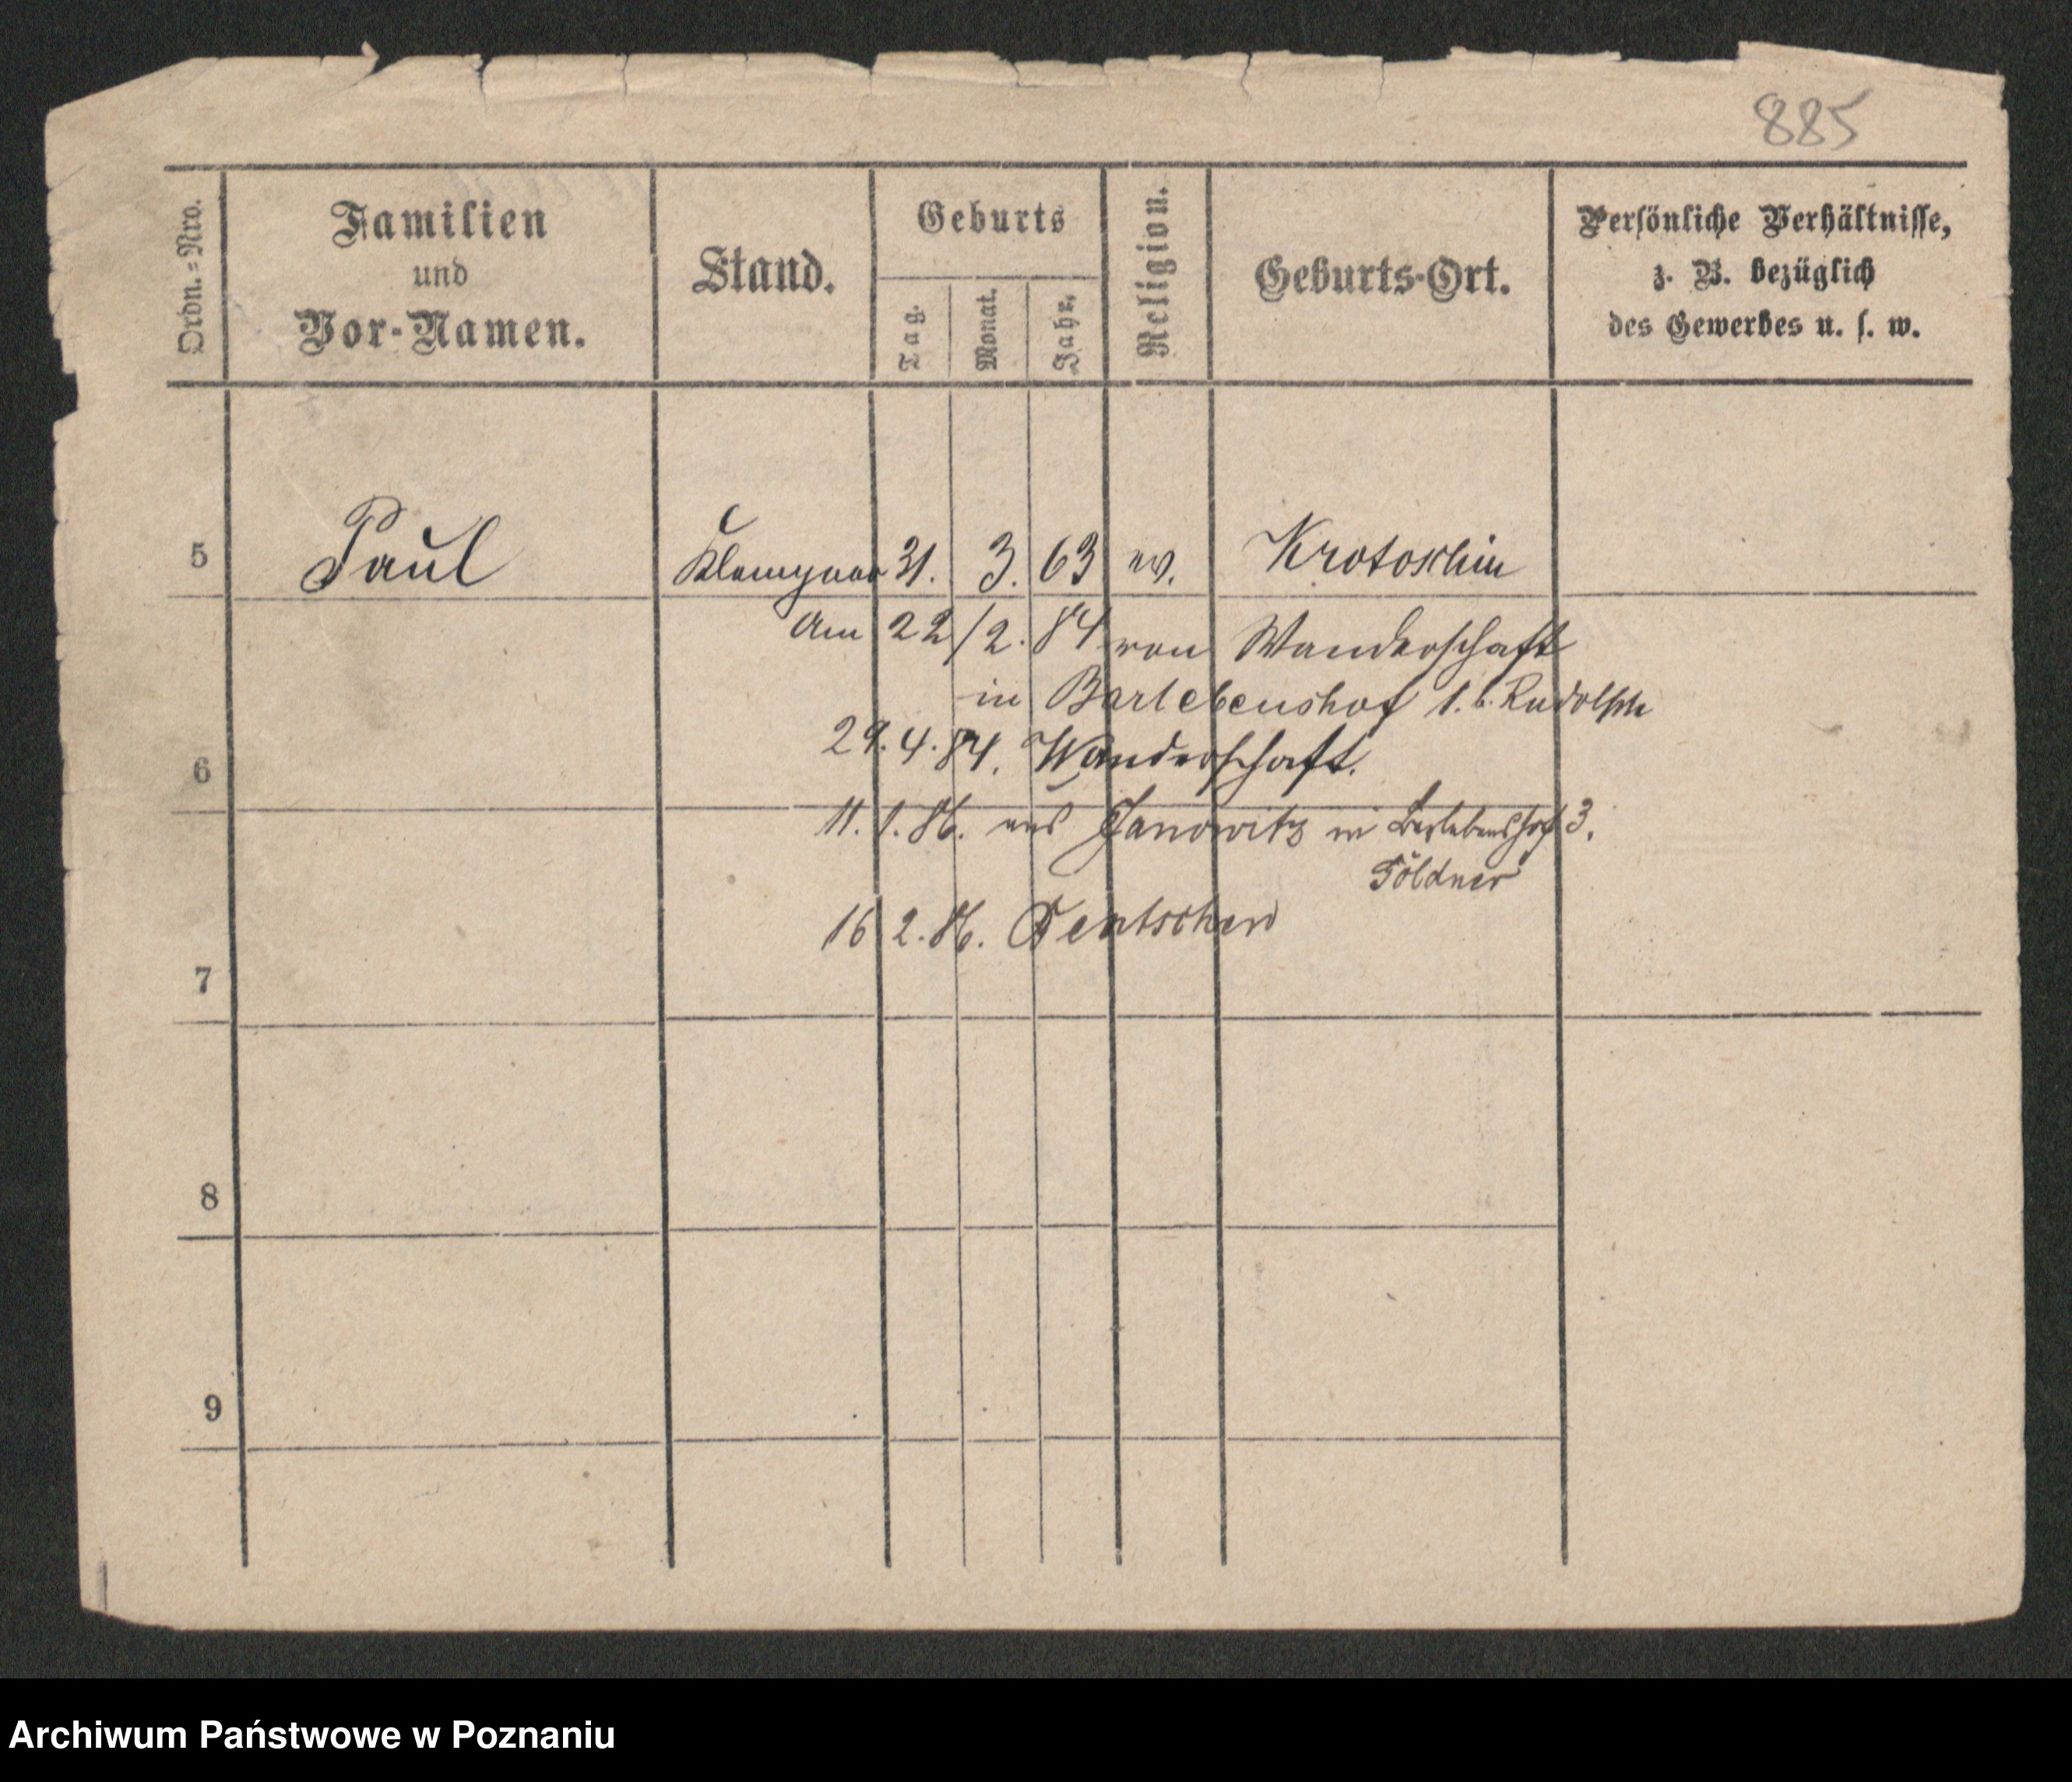 885
Ordn.=Nro.
Familien
und
Vor-Namen.
Stand.
Geburts
Tag.
Monat.
Jahr.
Religion.
Geburts-Ort.
Persönliche Verhältnisse,
z. B. bezüglich
des Gewerbes u. s. w.
5 Paul Klempner 31. 3. 63 ev. Krotoschin
Am 22/2. 84 von Wanderschaft
in Bartebenshof 1. b. Rudolph
6 29. 4. 84. Wanderschaft.
11. 1. 86. aus Janowitz in 3.
Földner
16 2. 86. Bentschen
7
8
9
Archiwum Państwowe w Poznaniu